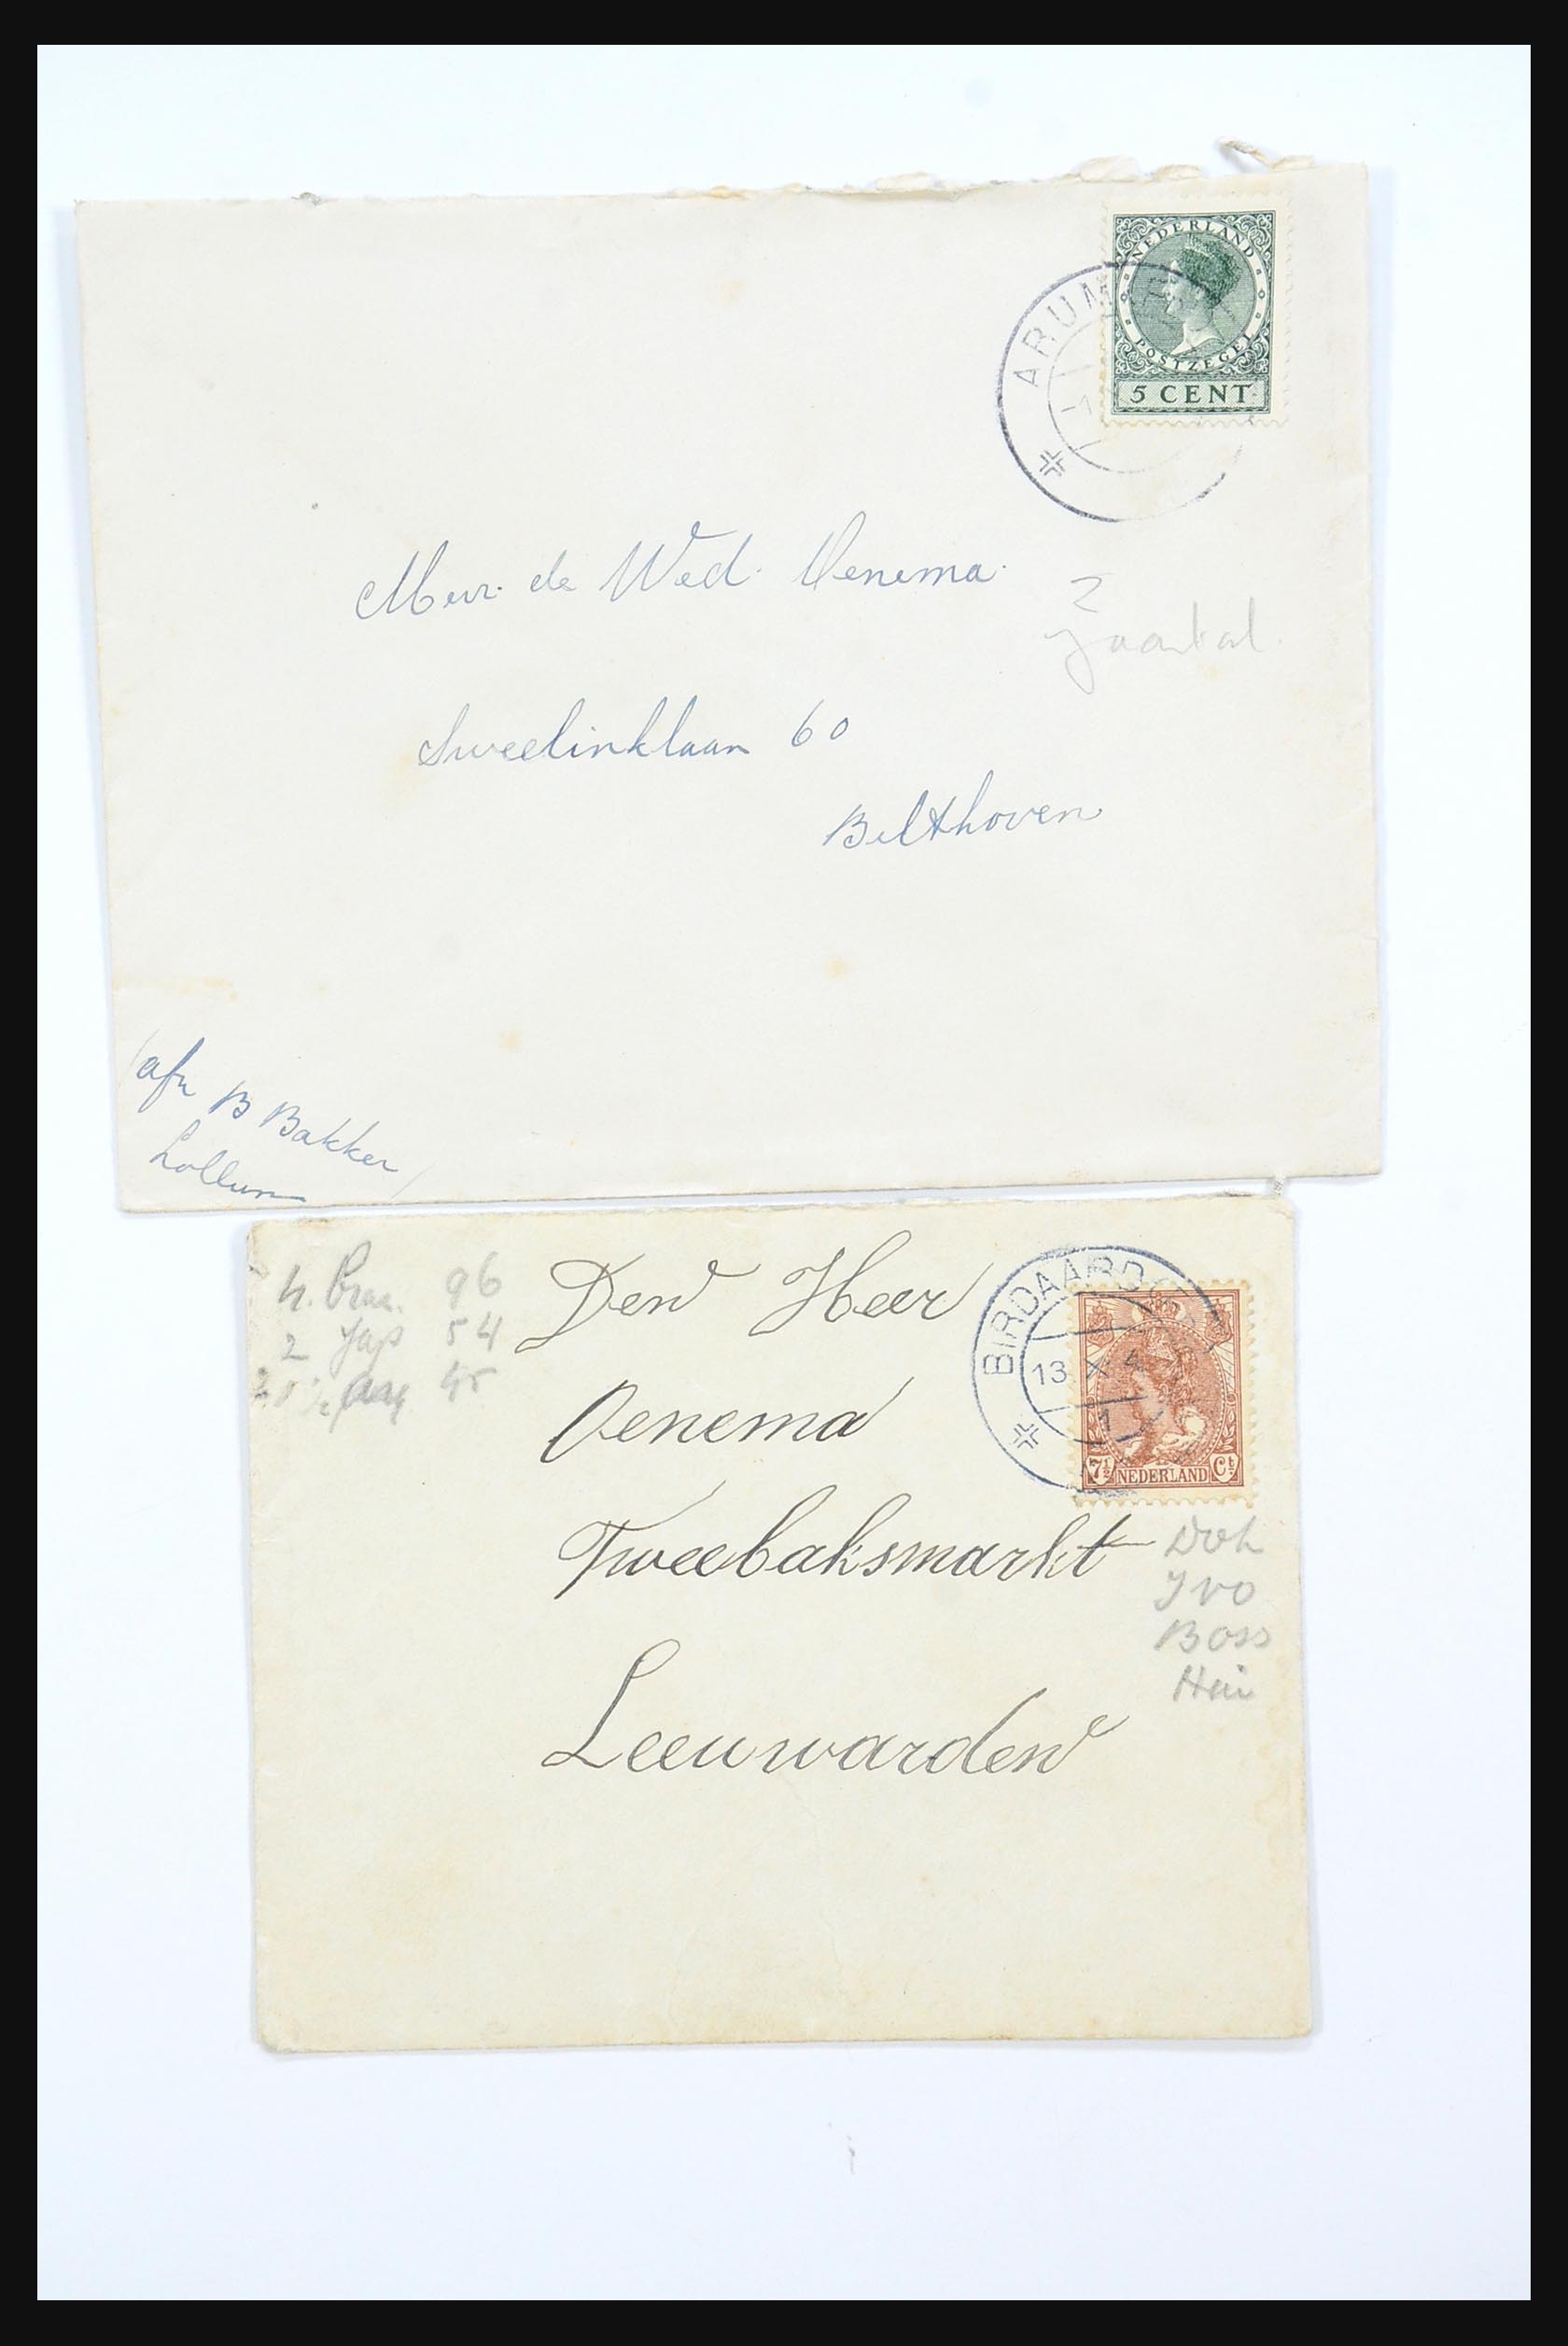 NEDERLAND
POSTZEGEL
5 CENT
ARUM
Mevr. de Wed. Oenema.
Jaartal.
Sweelinklaan 60
Bilthoven
(afz B Bakker
Lollum)
96
2 Jap 54
45
Den Heer
Oenema
Tweebaksmarkt
Leeuwarden
BIRDAARD
13 X 4
1
7½ NEDERLAND Ct
Ivo
Boss